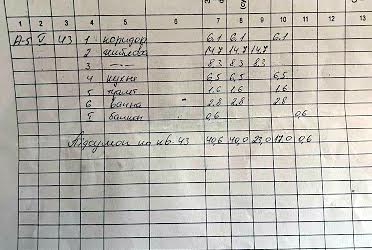 1 2 3 4 5 6 7 8 9 10 11 12 13
A-5 V 43 1 коридор 6,1 6,1 6,1
2 жилая 14,7 14,7 14,7
3 —"— 8,3 8,3 8,3
4 кухня 6,5 6,5 6,5
5 туалет 1,6 1,6 1,6
6 ванна 2,8 2,8 2,8
балкон 0,6 0,6
по кв. 43 40,6 40,0 23,0 17,0 0,6